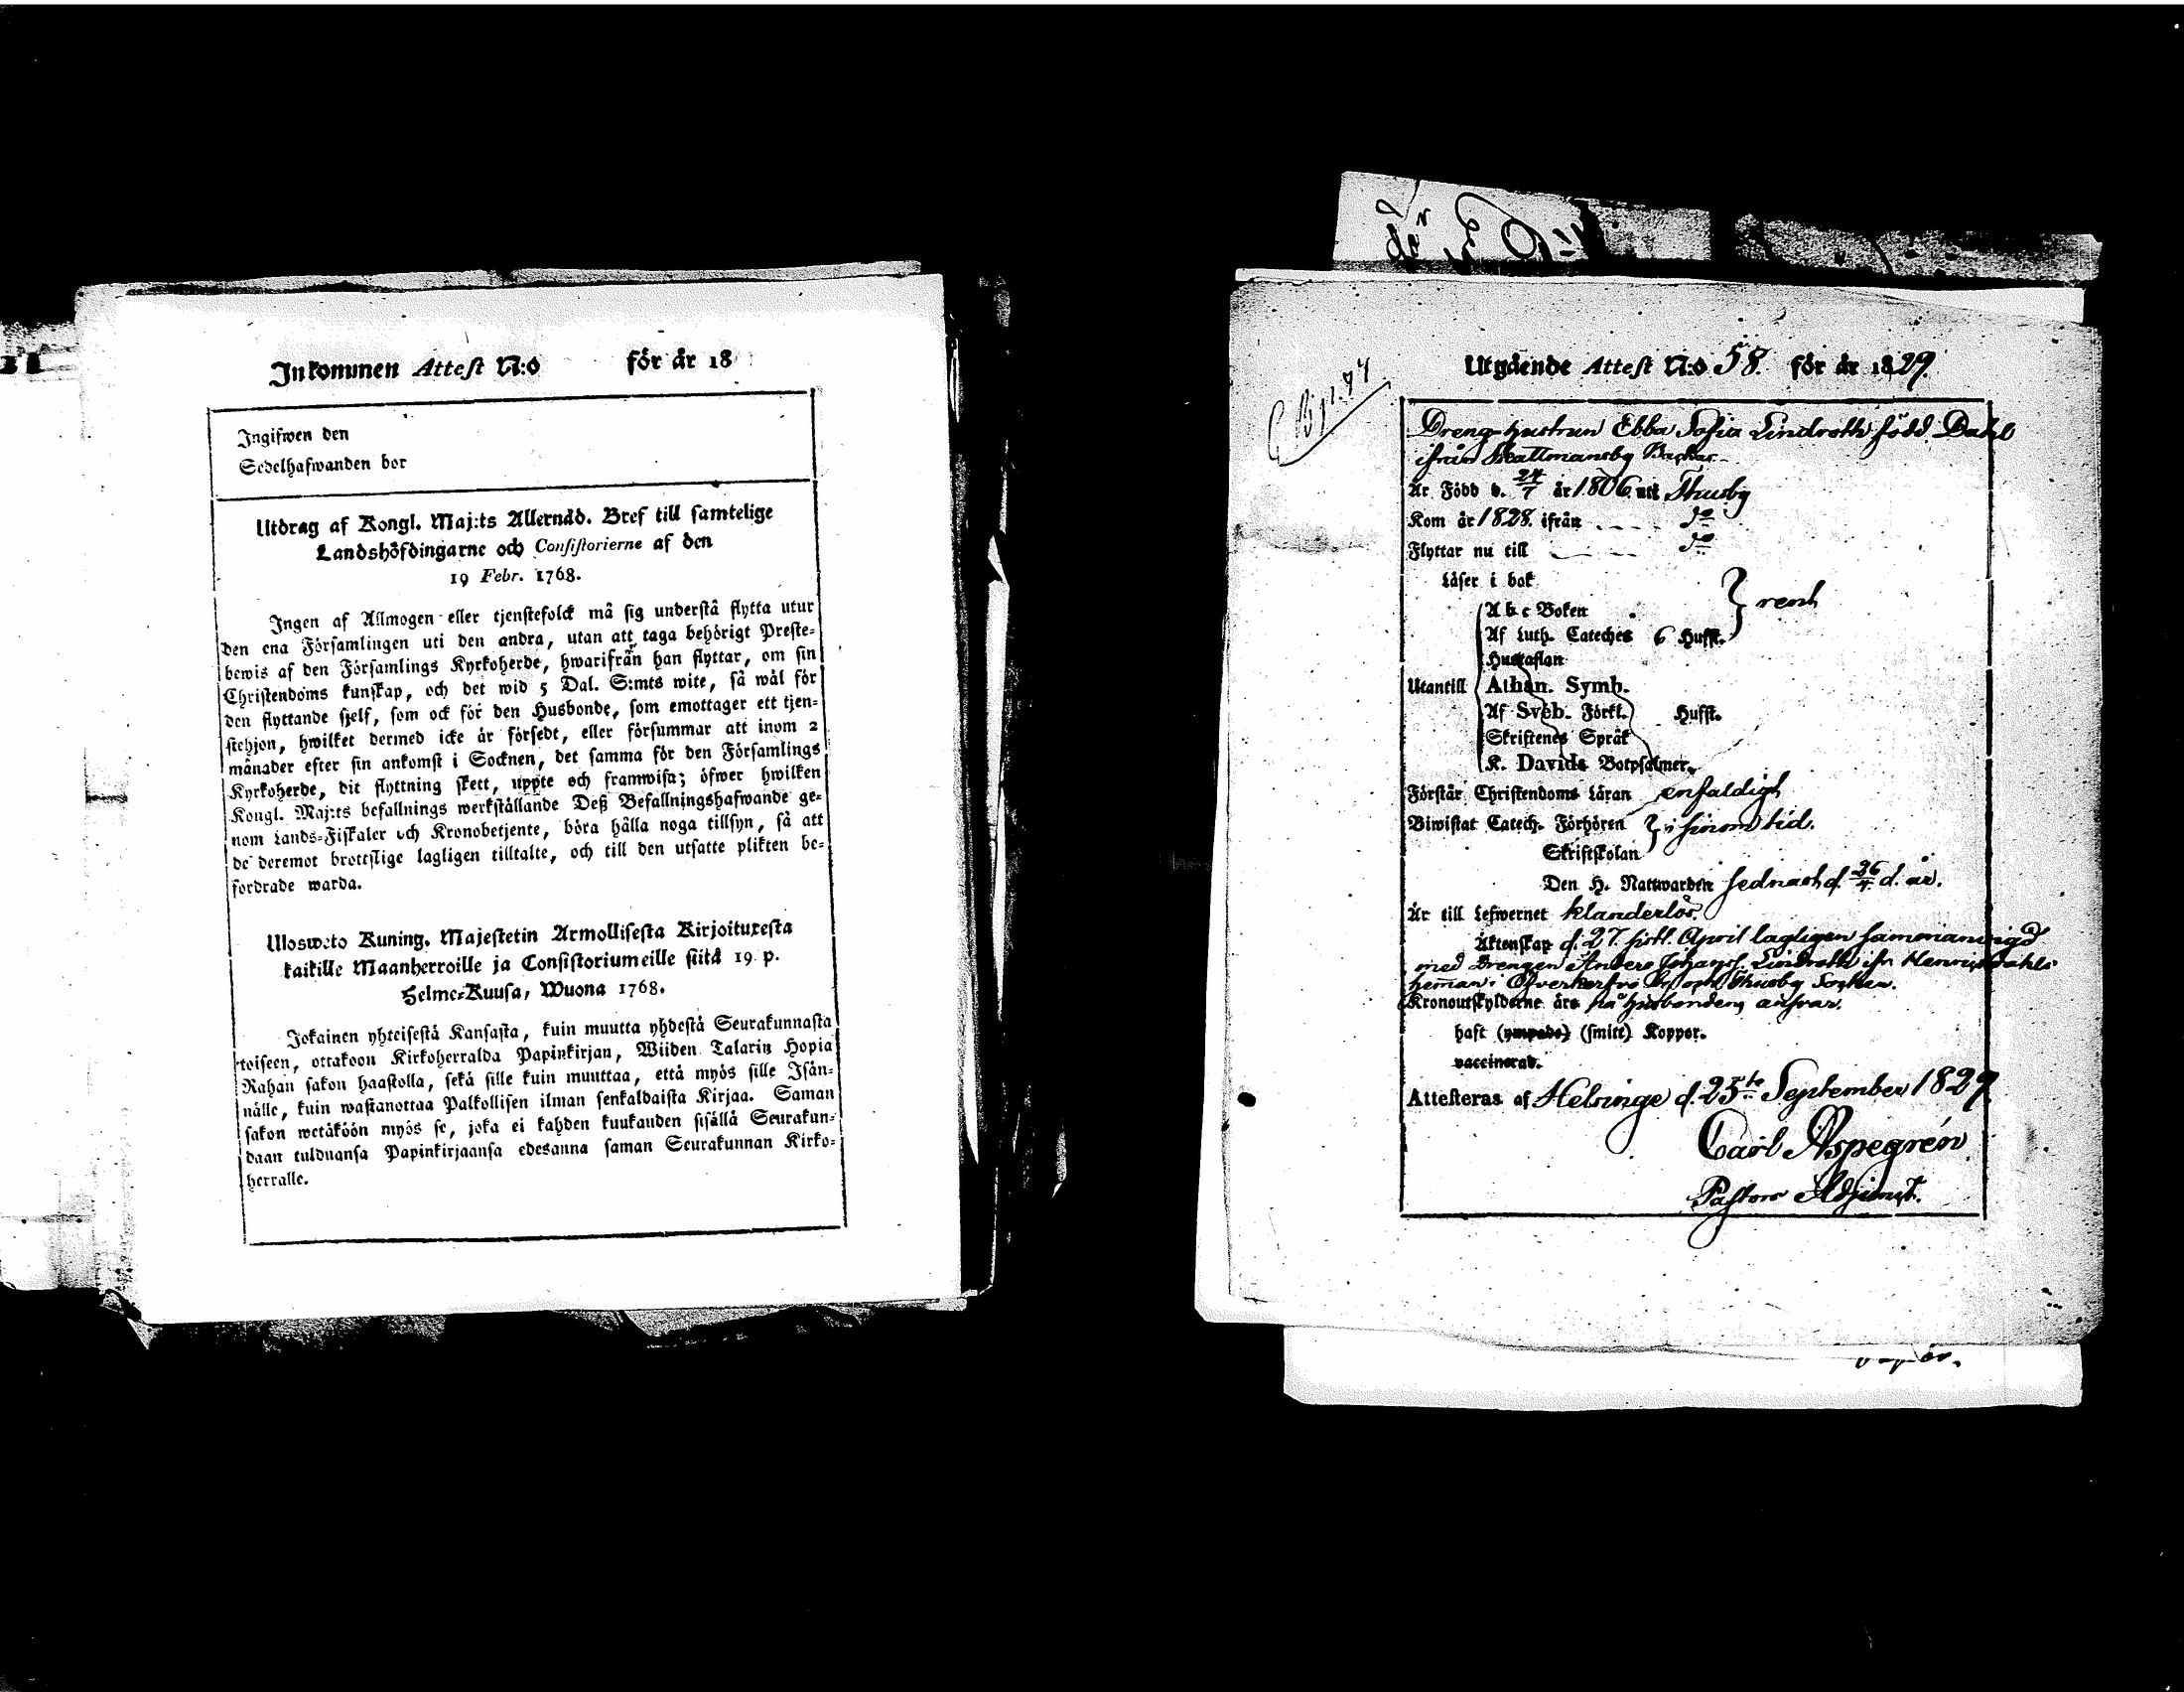 Inkommen Attest N:o för år 18
Ingifwen den
Sedelhafwanden bor
Utdrag af Kongl. Maj:ts Allernåd. Bref till samtelige
Landshöfdingarne och Consistorierne af den
19 Febr. 1768.
Ingen af Allmogen eller tjenstefolck må sig understå flytta utur
den ena Församlingen uti den andra, utan att taga behörigt Preste-
bewis af den Församlings Kyrkoherde, hwarifrån han flyttar, om sin
Christendoms kunskap, och det wid 5 Dal. S:mts wite, så wål för
den flyttande sjelf, som ock för den Husbonde, som emottager ett tjen-
stehjon, hwilket dermed icke år försedt, eller försummar att inom 2
månader efter sin ankomst i Socknen, det samma för den Församlings
Kyrkoherde, dit flyttning skett, uppte och framwisa; öfwer hwilken
Kongl. Maj:ts befallnings werkstållande Deß Befallningshafwande ge-
nom Lands-Fiskaler och Kronobetjente, böra hålla noga tillsyn, så att
de deremot brottslige lagligen tilltalte, och till den utsatte plikten be-
fordrade warda.
Ulosweto Kuning. Majestetin Armollisesta Kirjoituxesta
kaikille Maanherroille ja Consistoriumeille siitå 19 p.
Helme-Kuusa, Wuona 1768.
Jokainen yhteisestå Kansasta, kuin muutta yhdestå Seurakunnasta
toiseen, ottakoon Kirkoherralda Papinkirjan, Wiiden Talarin Hopia
Rahan sakon haastolla, sekå sille kuin muuttaa, ettå myös sille Isån-
nålle, kuin wastanottaa Palkollisen ilman senkaldaista Kirjaa. Saman
sakon wetåköön myös se, joka ei kahden kuukauden sisållå Seurakun-
daan tulduansa Papinkirjaansa edesanna saman Seurakunnan Kirko-
herralle.
Utgående Attest N:o 58 för år 1829.
Dreng-hustrun Ebba Sofia Lindroth född Dahl
ifrån Skattmansby Backas
År Född d. 24/7 år 1806 uti Thusby
Kom år 1828. ifrån do
Flyttar nu till do
Låser i bok
A b c Boken } rent
Af Luth. Cateches 6 Hufst.
Hustaflan
Utantill Athan. Symb.
Af Sveb. Förkl. Hufst.
Skriftenes Språk
K. Davids Botpsalmer.
Förstår Christendoms Låran enfaldigt
Biwistat Catech. Förhören } i sinom tid.
Skriftskolan
Den H. Nattwarden sednast d. 26/4 d. år.
År till Lefwernet klanderlös.
Åktenskap d. 27 sistl. April lagligen sammanwigd
med Drengen Anders Johans. Lindroth ifr.
heman i och Thusby Socken.
Kronoutskylderne åro på husbondens answar.
haft (ympade) (smitt) Koppor.
vaccinerad.
Attesteras af Helsinge d. 25te September 1829.
Carl Aspegrén
Pastors Adjunct.